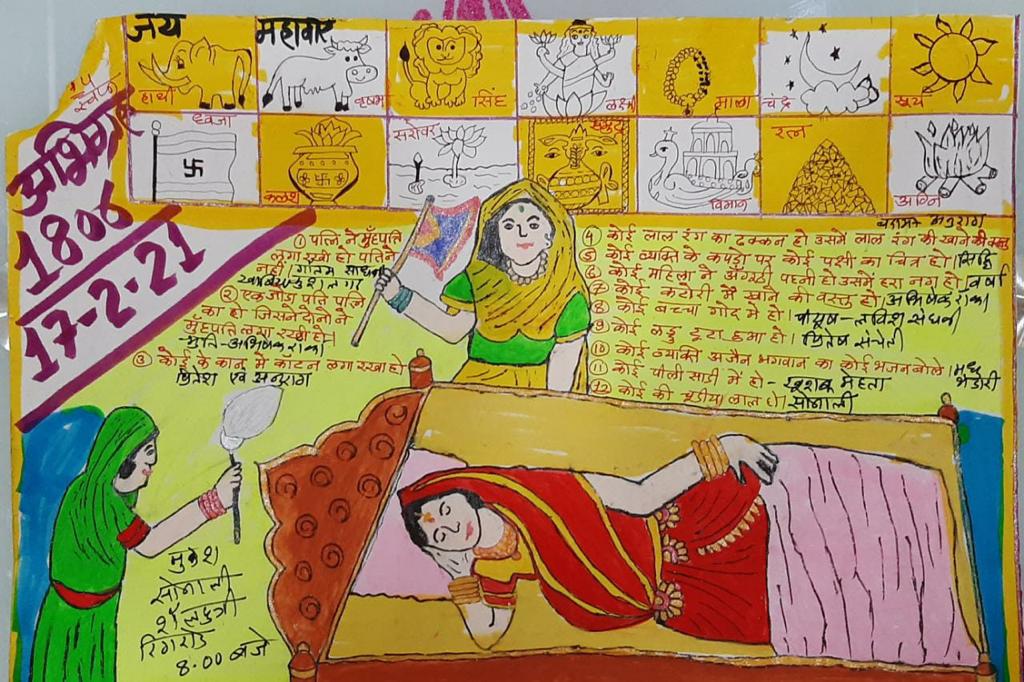 जय महावीर
हाथी
वृषभ
सिंह
लक्ष्मी
माला
चंद्र
सूर्य
ध्वजा
कलश
सरोवर
विमान
रत्न
अग्नि
14
अभिग्रह
1804
17-2-21
① पत्नि ने मुँहपति
लगा रखी हो पतिने
नही।
② एकजोडा पति पत्नि
का हो जिसने दोनो ने
मुँहपति लगा रखी हो
③ कोई के कान मे काटन लगा रखा हो
प्रितेश एवं अनुराग
अनुराग
④ कोई लाल रंग का ढक्कन हो उसमे लाल रंग की खाने की वस्तु
⑤ कोई व्यक्ति के कपडा पर कोई पक्षी का चित्र हो। सिद्धि
⑥ कोई महिला ने अंगुठी पहनी हो उसमें हरा नग हो। वर्षा
⑦ कोई कटोरी मे खाने की वस्तु हो।
⑧ कोई बच्चा गोद मे हो।
⑨ कोई लड्डु टूटा हुआ हो।
⑩ कोई व्यक्ति अजैन भगवान का कोई भजन बोले।
⑪ कोई पीली साडी में हो - मेहता
⑫ कोई की चूडीया लाल हो। सोनाली
मुकेश
सोनाली
रिंगरोड
8.00 बजे